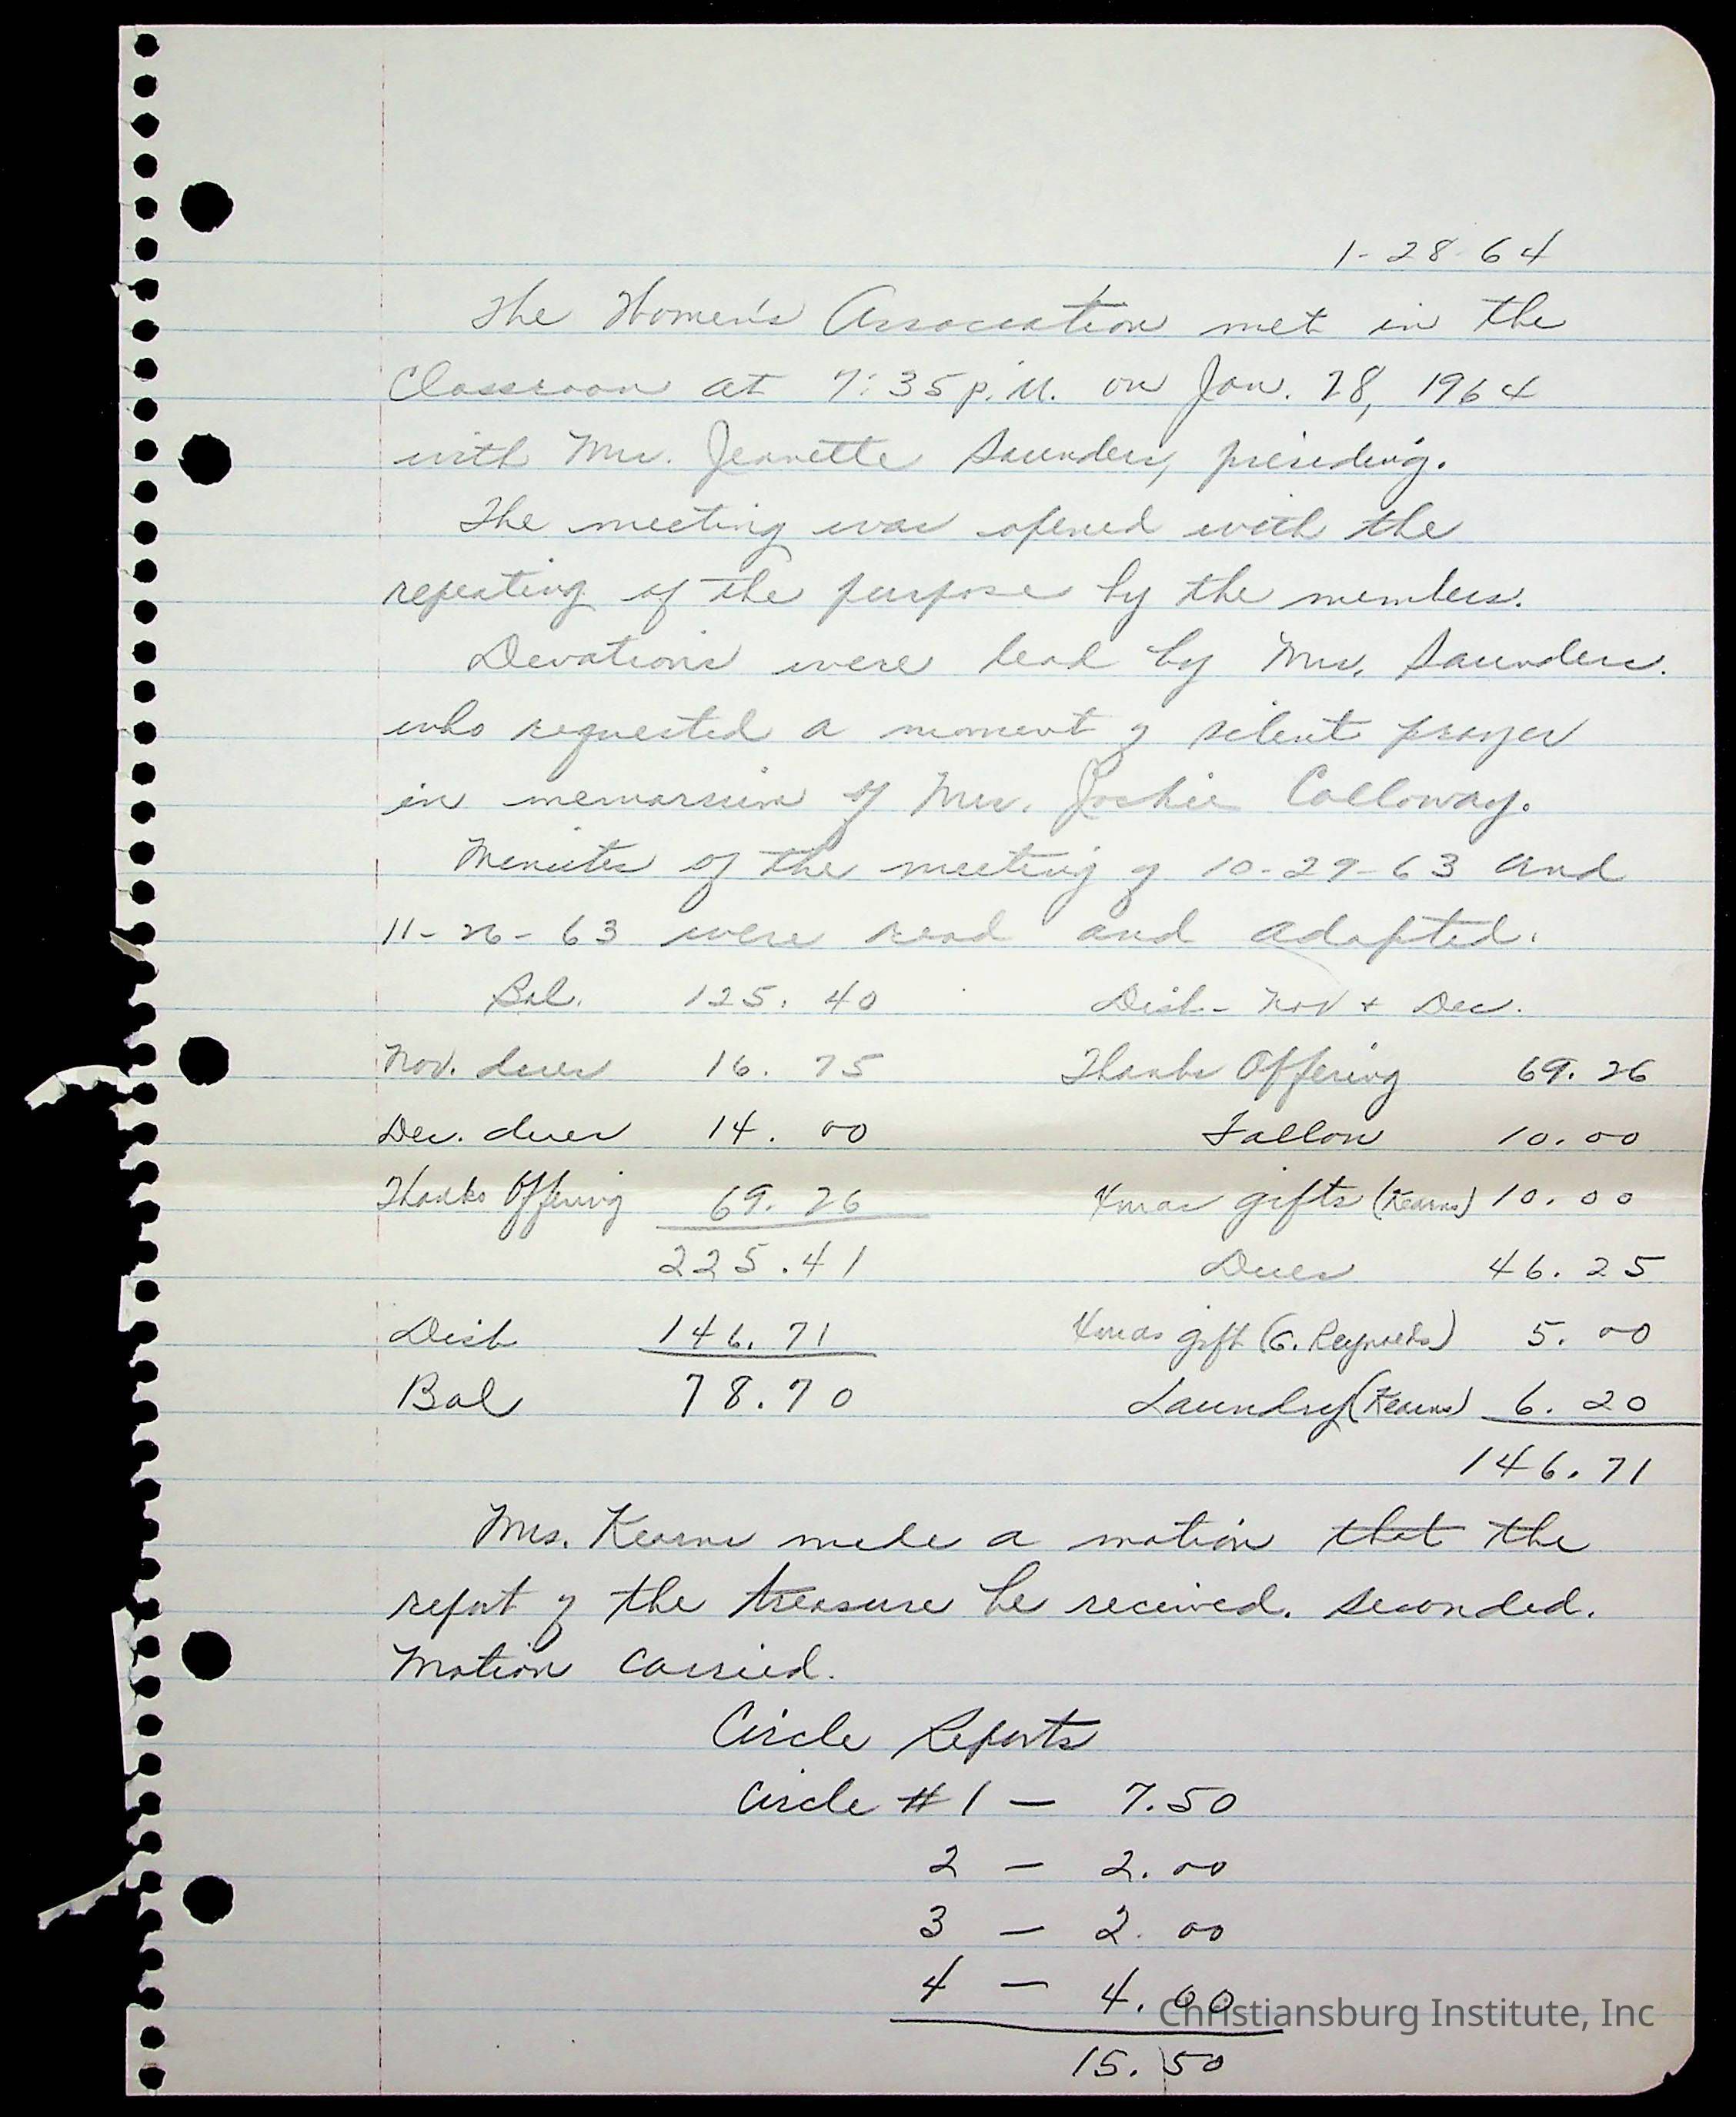 1-28-64
The Women's Association met in the
Classroom at 7:35 p.M. on Jan. 28, 1964
with Mrs. Jeanette Saunders, presiding.
The meeting was opened with the
repeating of the purpose by the members.
Devotions were lead by Mrs. Saunders.
who requested a moment of silent prayer
in memoriam of Mrs. Calloway.
Minutes of the meeting of 10-29-63 and
11-26-63 were read and adopted.
Bal. 125.40 Disb- Nov + Dec.
Nov. dues 16.75 Thanks Offering 69.26
Dec. dues 14.00 Fallon 10.00
Thanks Offering 69.26 Xmas gifts (Kearns) 10.00
225.41 Dues 46.25
Disb 146.71 Xmas gift (G. Reynolds) 5.00
Bal 78.70 Laundry (Kearns) 6.20
146.71
Mrs. Kearns made a motion that the
report of the treasure be received. Seconded.
Motion carried.
Circle Reports
Circle #1 — 7.50
2 — 2.00
3 — 2.00
4 — 4.00
Christiansburg Institute, Inc
15.50